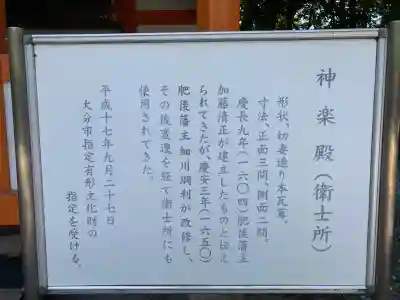 神楽殿(衛士所)
形状、切妻造り本瓦葺。
寸法、正面三間、側面二間。
慶長九年(一六〇四)肥後藩主
加藤清正が建立したものと伝え
られてきたが、慶安三年(一六五〇)
肥後藩主 細川綱利が改修し、
その後変遷を経て衛士所にも
使用されてきた。
平成十七年九月二十七日
大分市指定有形文化財の
指定を受ける。